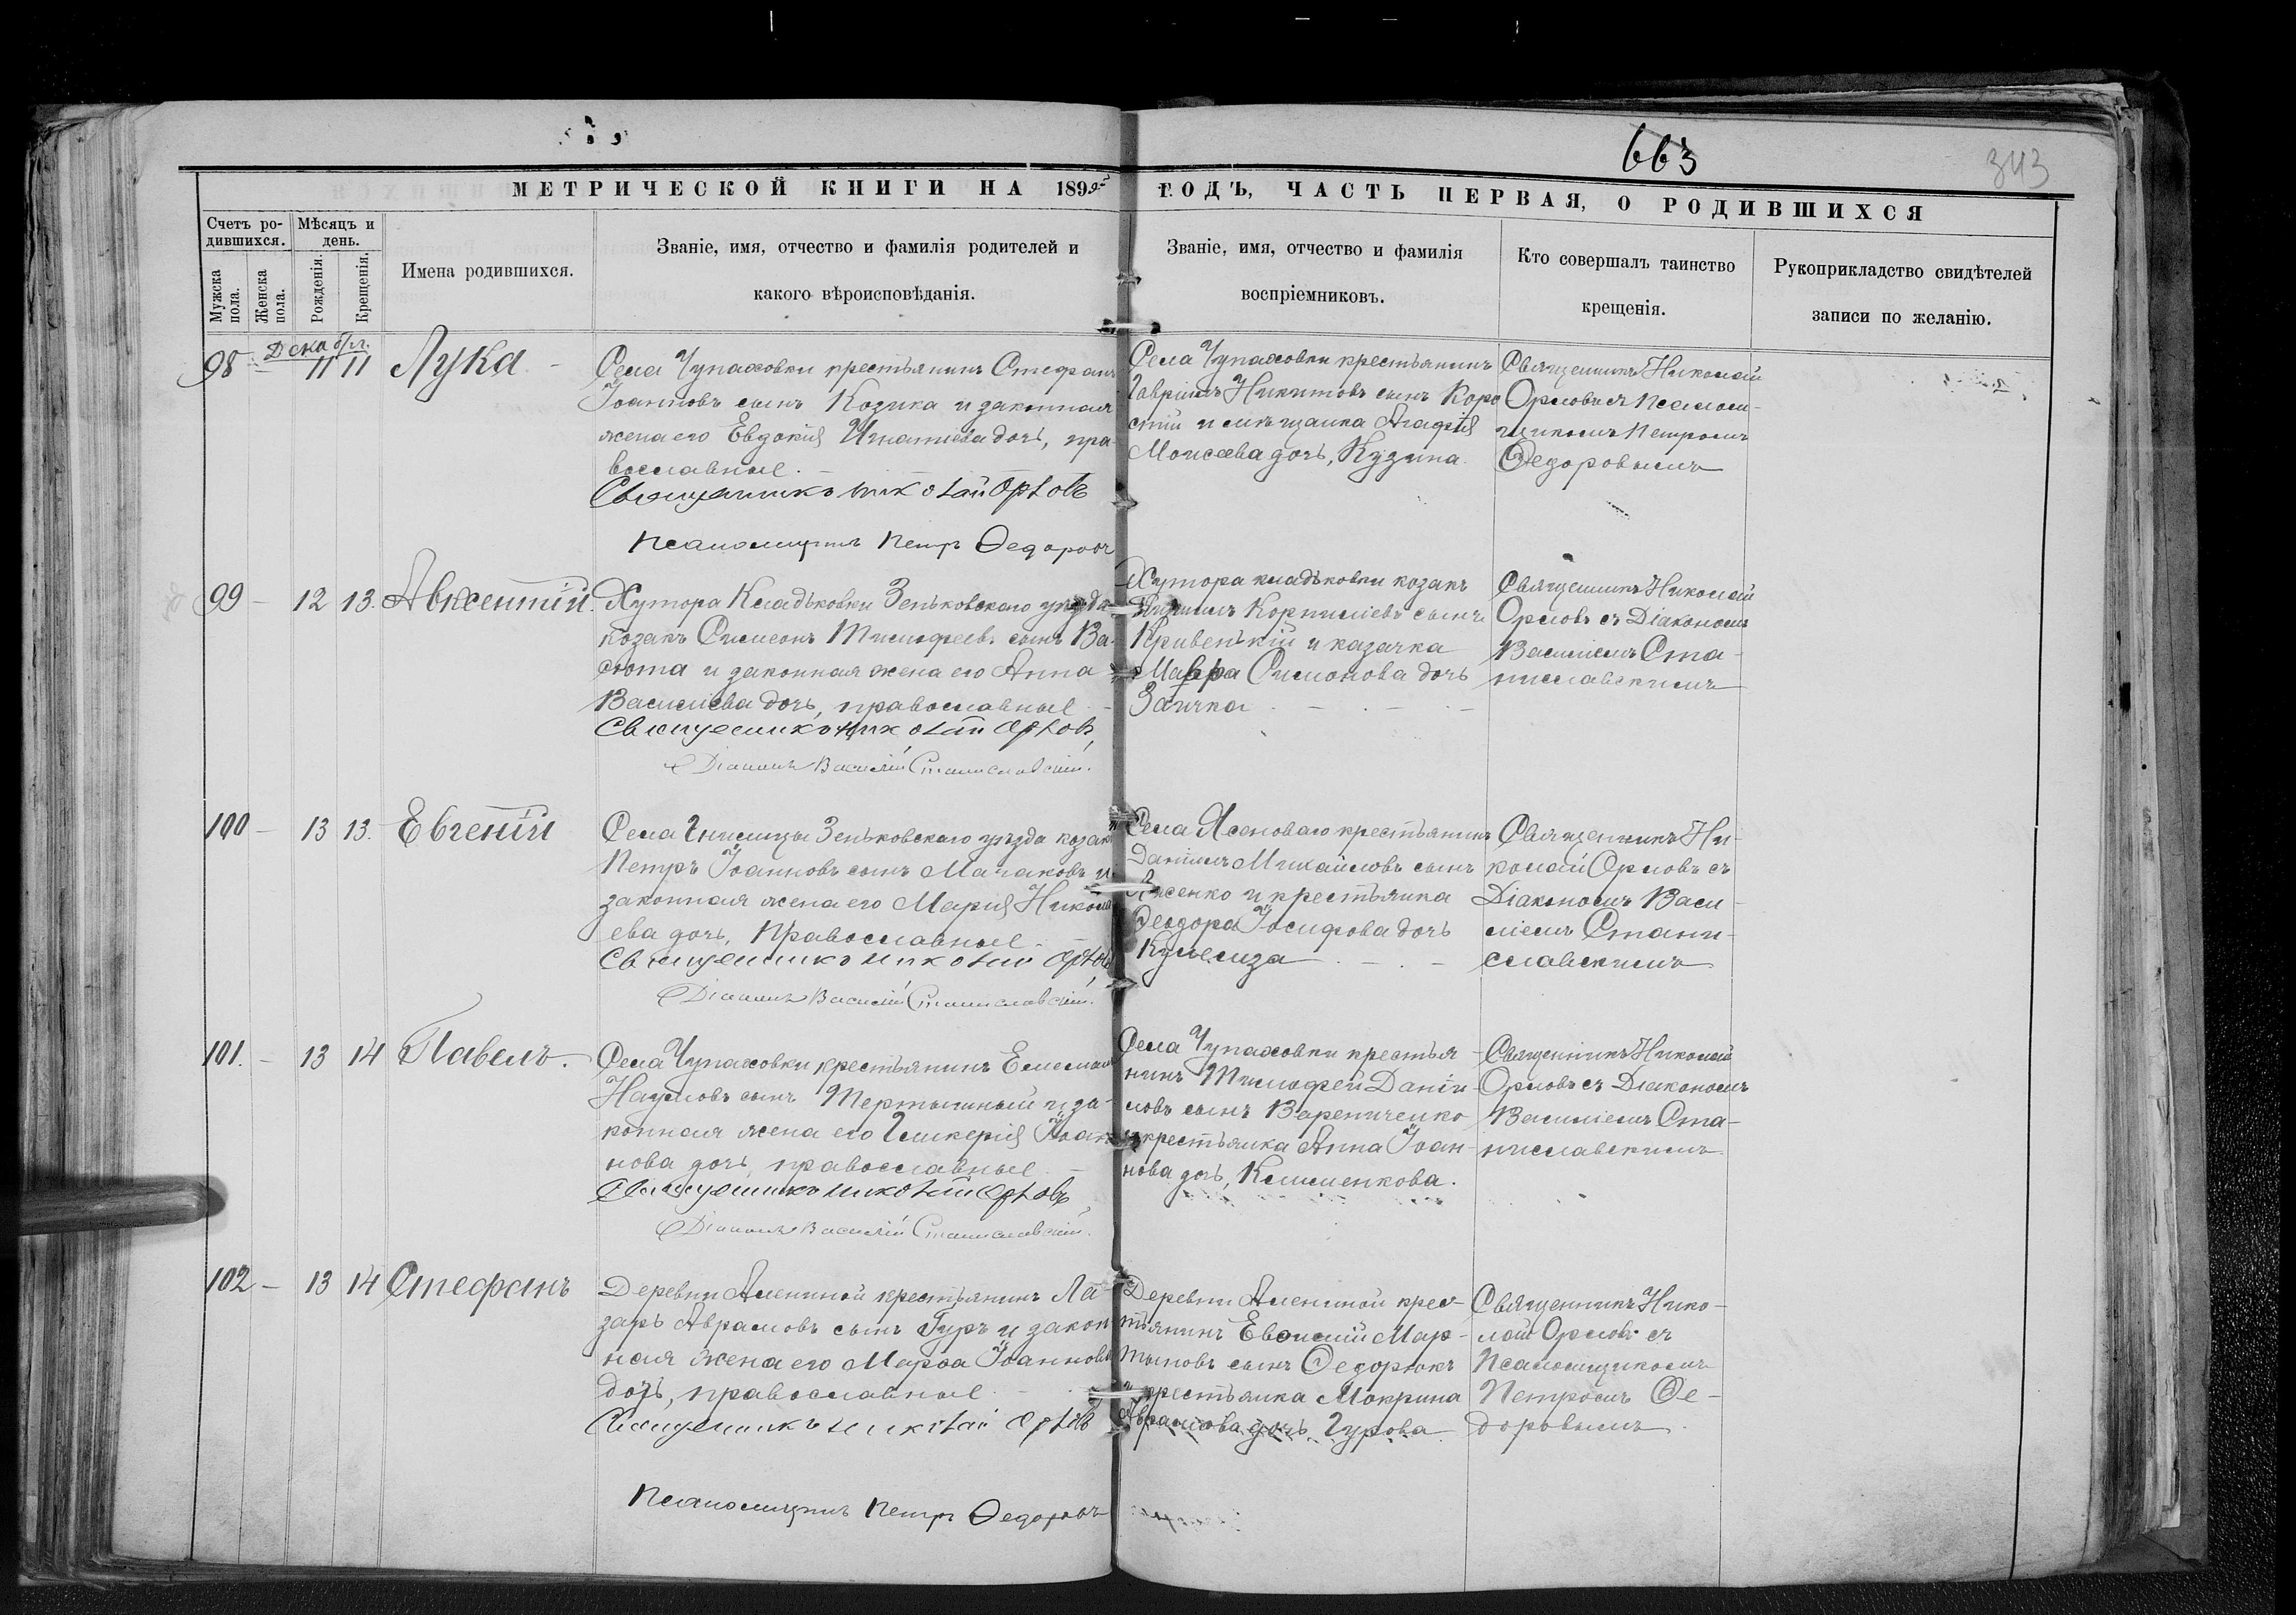 663
343
МЕТРИЧЕСКОЙ КНИГИ НА 189
ГОДЪ, ЧАСТЬ ПЕРВАЯ, О РОДИВШИХСЯ
Счетъ ро-
дившихся.
Мѣсяцъ и
день.
Мужска
пола.
Женска
пола.
Рожденія.
Крещенія.
Имена родившихся.
Званіе, имя, отчество и фамилія родителей и
какого вѣроисповѣданія.
Званіе, имя, отчество и фамилія
воспріемниковъ.
Кто совершалъ таинство
крещенія.
Рукоприкладство свидѣтелей
записи по желанію.
Декабрь
98 – 11 11 Лука –
Села Чупаховки крестьянинъ Стефанъ
Іоанновъ сынъ Козика и законная
жена его Евдокія Игнатіева дочь, пра-
вославные. –
Священникъ Николай Орловъ
Псаломщикъ Петръ Ѳедоровъ
Села Чупаховки крестьянинъ
Гавріилъ Никитовъ сынъ Коро
стій и мѣщанка Агафія
Моисеева дочь, Кузина
Священникъ Николай
Орловъ съ Псалом-
щикомъ Петромъ
Ѳедоровымъ
99 – 12 13. Авксентій.
Хутора Кладьковки Зеньковскаго уѣзда
козакъ Симеонъ Тимофеевъ сынъ Ва-
сюта и законная жена его Анна
Василіева дочь, православные –
Священникъ Николай Орловъ,
Діаконъ Василій Станиславскій.
Хутора Кладьковки козакъ
Корниліевъ сынъ
Кривенькій и казачка
Мавра Симонова дочь
Заичка
Священникъ Николай
Орловъ съ Діакономъ
Василіемъ Ста-
ниславскимъ
100 – 13 13. Евгеній
Села Гнилицы Зеньковскаго уѣзда козакъ
Петръ Іоанновъ сынъ Мачаковъ и
законная жена его Марія Никола
ева дочь, Православные –
Священникъ Николай Орловъ
Діаконъ Василій Станиславскій.
Села Ясеноваго крестьянинъ
Даніилъ Михайловъ сынъ
Лисенко и крестьянка
Ѳеодора Іосифова дочь
Кулемза
Священникъ Ни-
колай Орловъ съ
Діакономъ Васи-
ліемъ Стани-
славскимъ
101. – 13 14 Павелъ.
Села Чупаховки крестьянинъ Емеліанъ
Наумовъ сынъ Тертышный и за-
конная жена его Гликерія Іоан
нова дочь, православные –
Священникъ Николай Орловъ
Діаконъ Василій Станиславскій.
Села Чупаховки крестья-
нинъ Тимофей Даніи-
ловъ сынъ Варениченко
и крестьянка Анна Іоан-
нова дочь, Клименкова.
Священникъ Николай
Орловъ съ Діакономъ
Василіемъ Ста-
ниславскимъ
102 – 13 14 Стефанъ
Деревни Алениной крестьянинъ Ла-
зарь Аврамовъ сынъ Гуръ и закон
ная жена его Марѳа Іоаннова
дочь, православные –
Священникъ Николай Орловъ
Псаломщикъ Петръ Ѳедоровъ
Деревни Алениной крес-
тьянинъ Евѳимій Мар-
тыновъ сынъ Ѳедорюкъ
и крестьянка Мокрина
Аврамова дочь Гурова
Священникъ Нико-
лай Орловъ съ
Псаломщикомъ
Петромъ Ѳе-
доровымъ